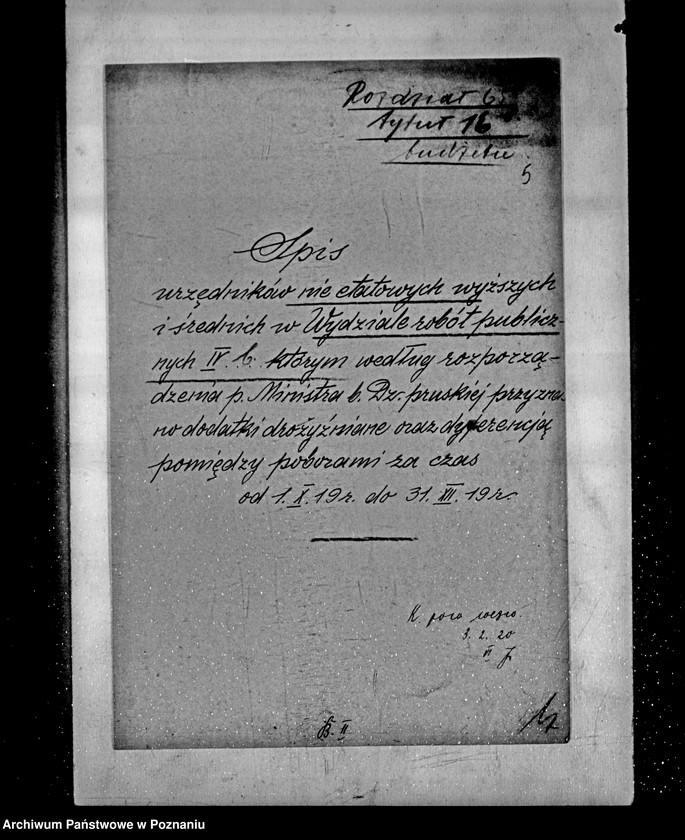 Rozdział 6
tytuł 16
budżetu
5
Spis
urzędników nie etatowych wyższych
i średnich w Wydziale robót publicz-
nych IV b. którym według rozporzą-
dzenia p. Ministra b. Dz. pruskiej przyzna
no dodatki drożyźniane oraz dyferencją
pomiędzy poborami za czas
od 1. X. 19 r. do 31. XII. 19 r.
K.
3. 2. 20
VI
B. II
Archiwum Państwowe w Poznaniu